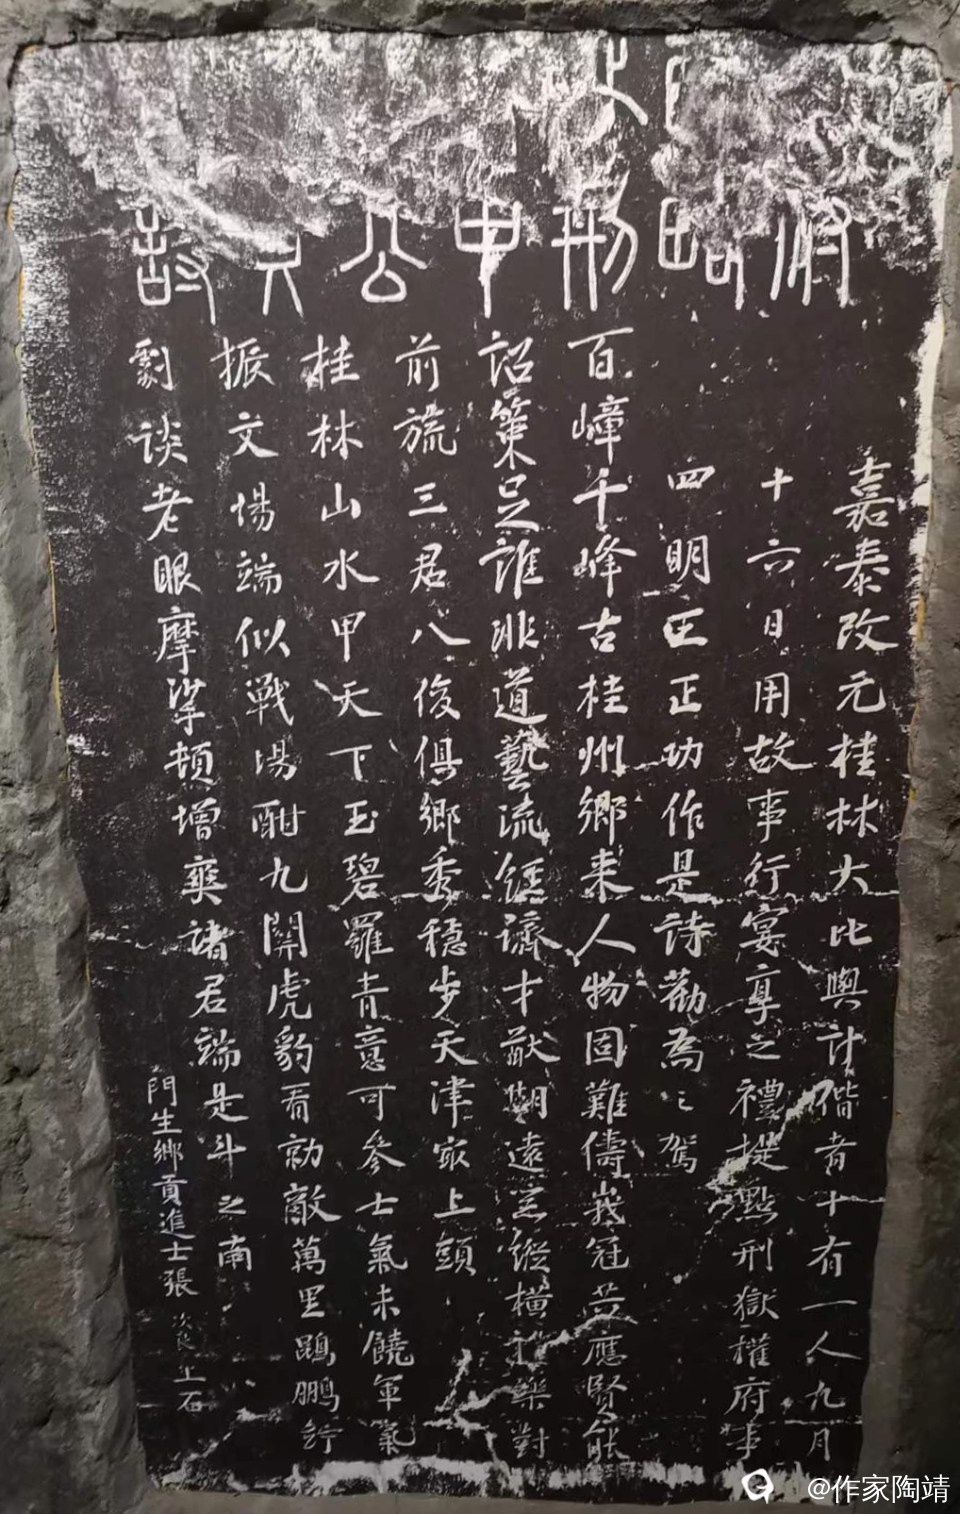 略刑公
嘉泰改元桂林大比與計偕者十有一人九月
十六日用故事行宴享之禮提點刑獄權府事
四明王正功作是詩勸為之駕
百嶂千峰古桂州鄉來人物固難儔峩冠共應賢能
詔策足誰非道藝流經濟才猷期遠器縱橫禮樂對
前旒三君八俊俱鄉秀穩步天津冣上頭
桂林山水甲天下玉碧羅青意可參士氣未饒軍氣
振文場端似戰場酣九關虎豹看勍敵萬里鵾鵬竚
劇談老眼摩挲頓增爽諸君端是斗之南
門生鄉貢進士張次良上石
@作家陶靖